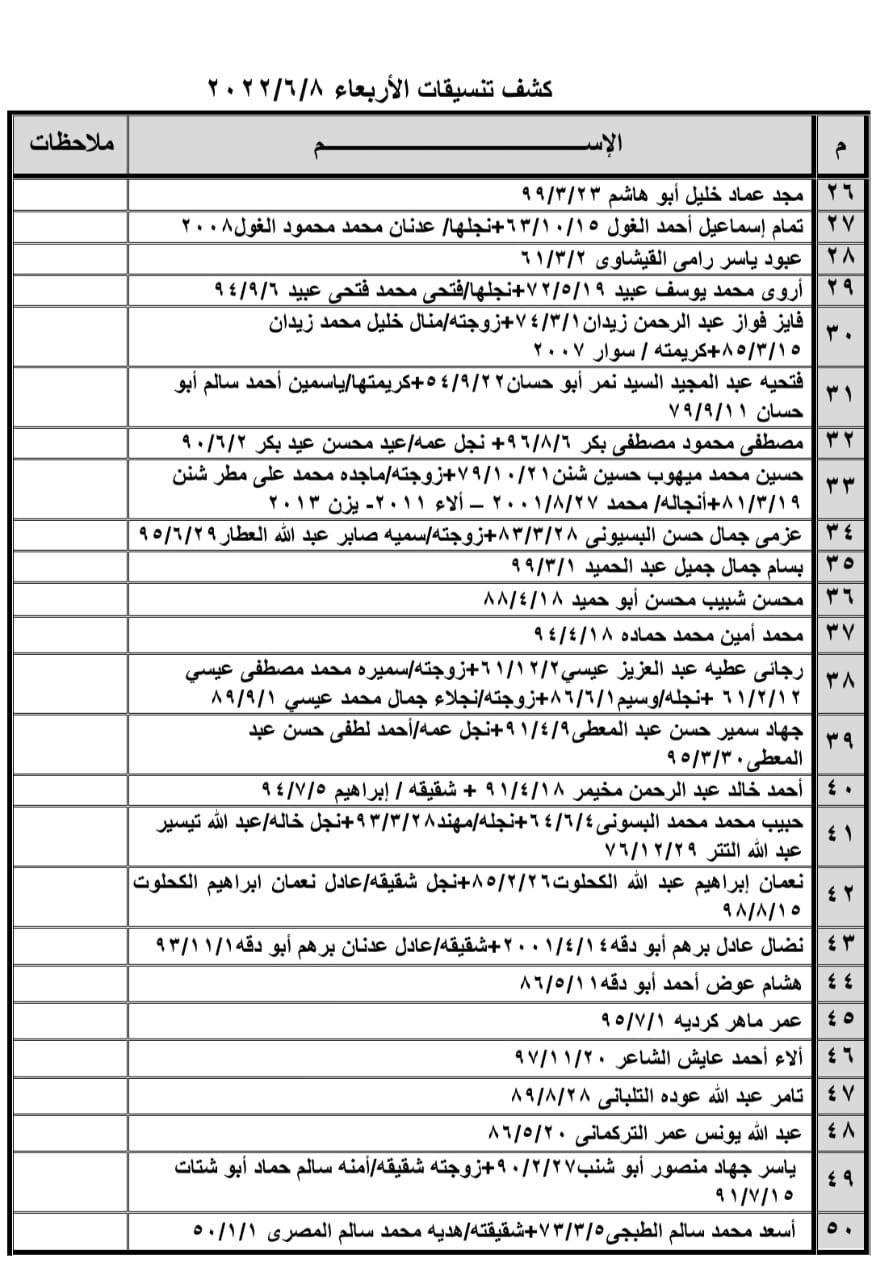 كشف تنسيقات الأربعاء ٢٠٢٢/٦/٨
م الإســـــم ملاحظات
٢٦ مجد عماد خليل أبو هاشم ٩٩/٣/٢٣
٢٧ تمام إسماعيل أحمد الغول ٦٣/١٠/١٥+نجلها/ عدنان محمد محمود الغول٢٠٠٨
٢٨ عبود ياسر رامى القيشاوى ٦١/٣/٢
٢٩ أروى محمد يوسف عبيد ٧٢/٥/١٩+نجلها/فتحى محمد فتحى عبيد ٩٤/٩/٦
٣٠ فايز فواز عبد الرحمن زيدان٧٤/٣/١+زوجته/منال خليل محمد زيدان
٨٥/٣/١٥+كريمته / سوار ٢٠٠٧
٣١ فتحيه عبد المجيد السيد نمر أبو حسان٥٤/٩/٢٢+كريمتها/ياسمين أحمد سالم أبو
حسان ٧٩/٩/١١
٣٢ مصطفى محمود مصطفى بكر ٩٦/٨/٦+ نجل عمه/عيد محسن عيد بكر ٩٠/٦/٢
٣٣ حسين محمد ميهوب حسين شنن٧٩/١٠/٢١+زوجته/ماجده محمد على مطر شنن
٨١/٣/١٩+أنجاله/ محمد ٢٠٠١/٨/٢٧ – ألاء ٢٠١١- يزن ٢٠١٣
٣٤ عزمى جمال حسن البسيونى ٨٣/٣/٢٨+زوجته/سميه صابر عبد الله العطار٩٥/٦/٢٩
٣٥ بسام جمال جميل عبد الحميد ٩٩/٣/١
٣٦ محسن شبيب محسن أبو حميد ٨٨/٤/١٨
٣٧ محمد أمين محمد حماده ٩٤/٤/١٨
٣٨ رجائى عطيه عبد العزيز عيسي٦١/١٢/٢+زوجته/سميره محمد مصطفى عيسي
٦١/٢/١٢ +نجله/وسيم٨٦/٦/١+زوجته/نجلاء جمال محمد عيسي ٨٩/٩/١
٣٩ جهاد سمير حسن عبد المعطى٩١/٤/٩+نجل عمه/أحمد لطفى حسن عبد
المعطى٩٥/٣/٣٠
٤٠ أحمد خالد عبد الرحمن مخيمر ٩١/٤/١٨ + شقيقه / إبراهيم ٩٤/٧/٥
٤١ حبيب محمد محمد البسونى٦٤/٦/٤+نجله/مهند٩٣/٣/٢٨+نجل خاله/عبد الله تيسير
عبد الله التتر ٧٦/١٢/٢٩
٤٢ نعمان إبراهيم عبد الله الكحلوت٨٥/٢/٢٦+نجل شقيقه/عادل نعمان ابراهيم الكحلوت
٩٨/٨/١٥
٤٣ نضال عادل برهم أبو دقه٢٠٠١/٤/١٤+شقيقه/عادل عدنان برهم أبو دقه٩٣/١١/١
٤٤ هشام عوض أحمد أبو دقه٨٦/٥/١١
٤٥ عمر ماهر كرديه ٩٥/٧/١
٤٦ ألاء أحمد عايش الشاعر ٩٧/١١/٢٠
٤٧ تامر عبد الله عوده التلبانى ٨٩/٨/٢٨
٤٨ عبد الله يونس عمر التركمانى ٨٦/٥/٢٠
٤٩ ياسر جهاد منصور أبو شنب٩٠/٢/٢٧+زوجته شقيقه/أمنه سالم حماد أبو شتات
٩١/٧/١٥
٥٠ أسعد محمد سالم الطبجى٧٣/٣/٥+شقيقته/هديه محمد سالم المصرى ٥٠/١/١